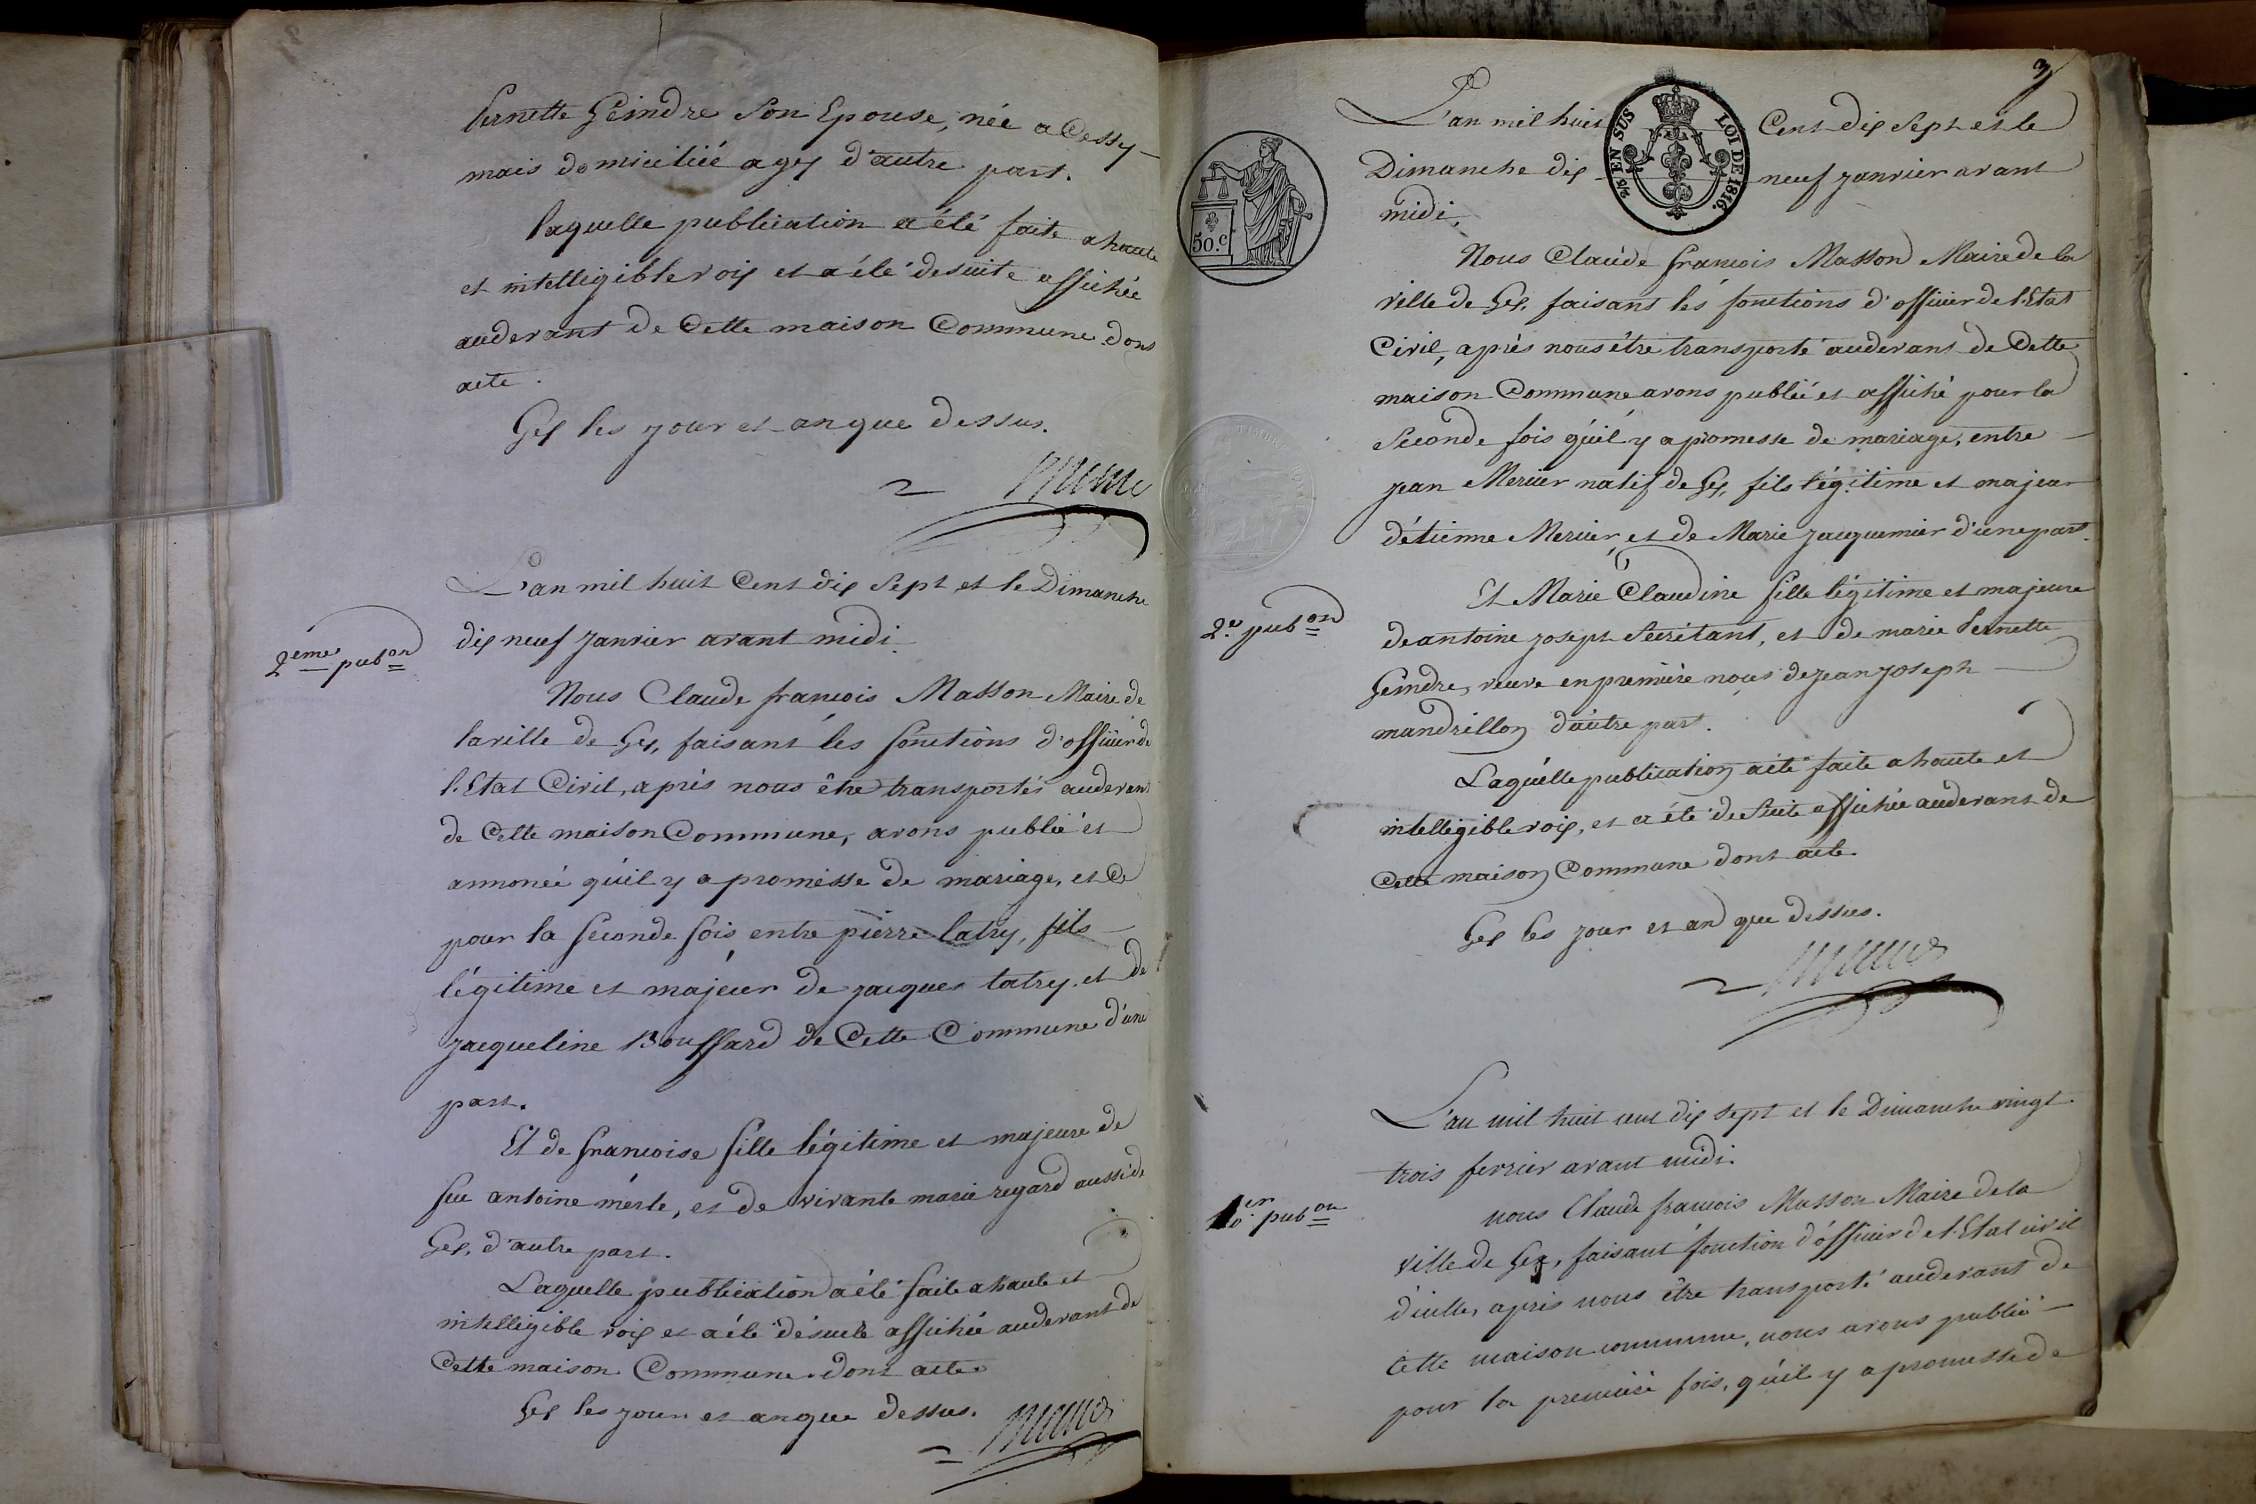 pernette Geindre Son Epouse, née a Cessy
mais domiciliée a gex d'autre part.
laquelle publication a été faite a haute
et intelligible voix et a été desuite affichée
audevant de Cette maison Commune dont
acte.
Gex les jour et an que dessus.
L'an mil huit Cent dix Sept et le Dimanche
dix neuf Janvier avant midi.
2ème pubon
Nous Claude francois Masson Maire de
la ville de Gex, faisant les fonctions d'officier de
l'Etat Civil, après nous être transportés audevant
de Cette maison Commune, avons publié et
annoncé qu'il y a promesse de mariage, et Ce
pour la Seconde fois entre pierre latry, fils
légitime et majeur de jacques latry et de
jacqueline Bouffard de Cette Commune d'une
part.
Et de francoise fille légitime et majeure de
feu antoine merle, et de vivante marie regard aussi de
Gex, d'autre part.
Laquelle publication a été faite a haute et
intelligible voix et a été desuite affichée audevant de
Cette maison Commune dont acte
Gex les jour et an que dessus.
3
2/5 EN SUS LOI DE 1816.
50.c
L'an mil huit Cent dix Sept et le
Dimanche dix neuf janvier avant
midi.
Nous Claude francois Masson Maire de la
ville de Gex, faisant les fonctions d'officier de l'Etat
Civil, après nous être transporté audevant de Cette
maison Commune avons publié et affiché pour la
Seconde fois qu'il y a promesse de mariage, entre
jean Mercier natif de Gex, fils légitime et majeur
d'étienne Mercier, et de Marie jacquemier d'une part.
2e pubon
Et Marie Claudine fille légitime et majeure
de antoine joseph Secrétant, et de marie pernette
Geindre, veuve en premiere noces de jean joseph
mandrillon d'autre part.
Laquelle publication a été faite a haute et
intelligible voix, et a été de Suite affichée audevant de
Cette maison Commune dont acte
Gex les jour et an que dessus.
L'an mil huit cent dix sept et le Dimanche vingt
trois fevrier avant midi.
1er pubon
nous Claude francois Masson Maire de la
ville de Gex, faisant fonction d'officier de l'Etat civil
d'icelle, après nous être transporté audevant de
Cette maison commune, nous avons publié
pour la première fois, qu'il y a promesse de